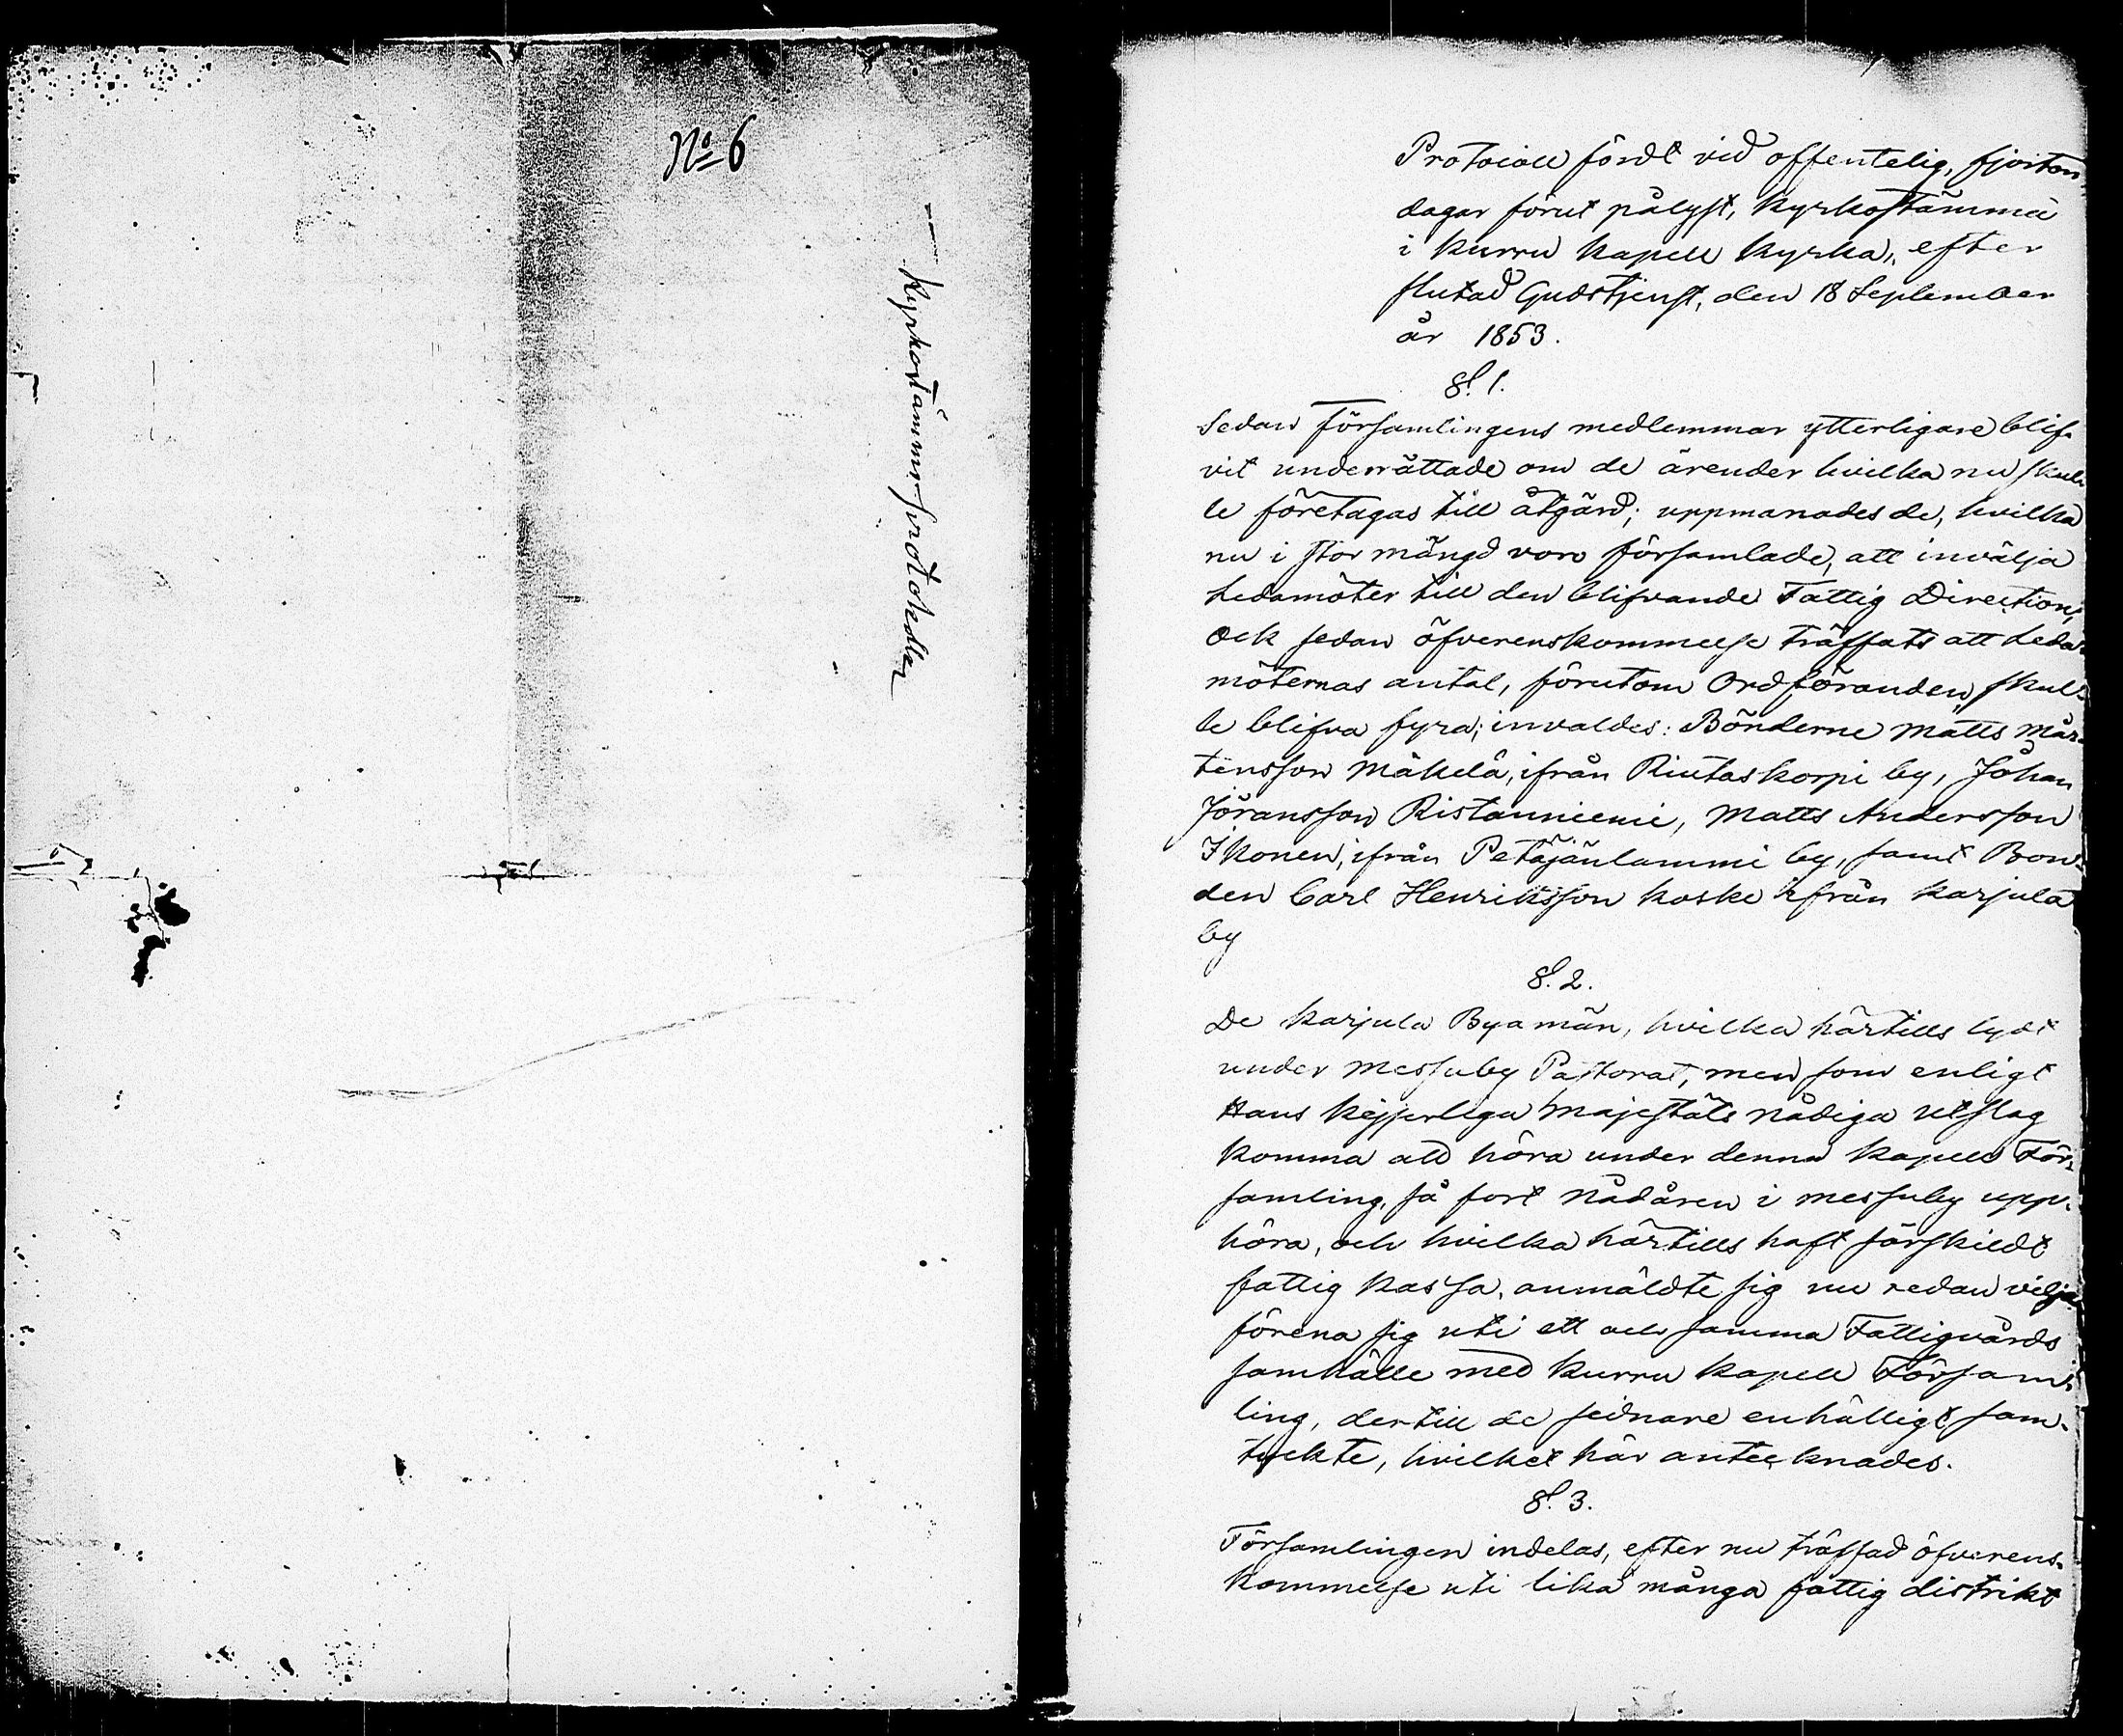 No 6
Kyrkostämmo protokoller
Protocoll fördt vid offentelig, fjorton
dagar förut pålyst, Kyrkostämma
i Kurru Kapell Kyrka, efter
slutad Gudstjenst, den 18 September
år 1853.
§. 1.
Sedan Församlingens medlemmar ytterligare blif-
vit underrättade om de ärender hvilka nu skul-
le företagas till åtgärd; uppmanades de, hvilka
nu i stor mängd voro församlade, att invälja
Ledamöter till den blifvande Fattig Direction,
Ock sedan öfverenskommelse träffats att Leda-
möternas antal, förutom Ordföranden, skul-
le blifva fyra; invaldes: Bönderne Matts Mår-
tensson Mäkelä, ifrån Riutaskorpi by, Johan
Jöransson Ristanniemi, Matts Andersson
Ikonen, ifrån Petäjänlammi by, samt Bon-
den Carl Henriksson Koske ifrån Karjula
by
§. 2.
De Karjula Byamän, hvilka härtills lydt
under Messuby Pastorat, men som enligt
Hans Kejserliga Majestäts Nådiga utslag
komma att höra under denna Kapell För-
samling, så fort Nådåren i Messuby upp-
höra, och hvilka härtills haft särskildt
fattig kassa, anmäldte sig nu redan vilja
förena sig uti ett och samma Fattigvårds
samhälle med Kurru Kapell Försam-
ling, dertill de sednare enhälligt sam-
tyckte, hvilket här antecknades.
§. 3.
Församlingen indelas, efter nu träffad öfverens-
kommelse uti lika många fattig distrikt